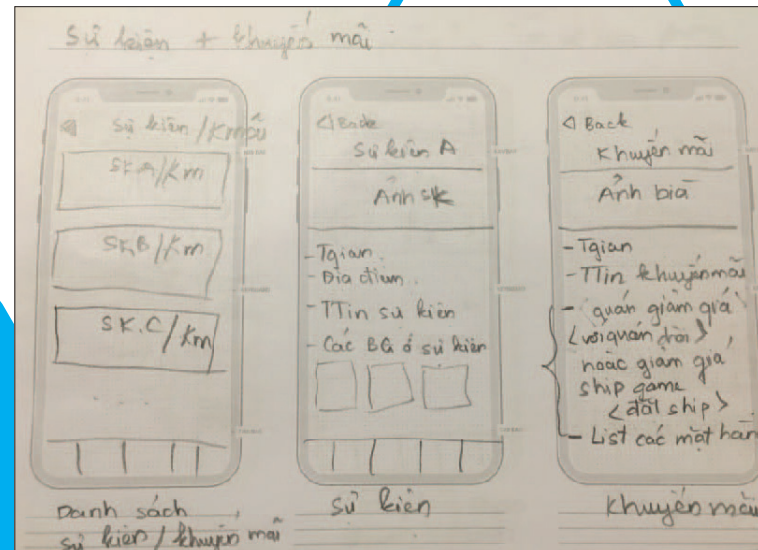 Sự kiện + khuyến mãi
Sự kiện / Kmãi
SK.A/Km
SK.B/Km
SK.C/Km
Danh sách
sự kiện / khuyến mãi
◁ Back
Sự kiện A
Ảnh SK
- Tgian.
- Địa điểm.
- TTin sự kiện
- Các BG ở sự kiện
Sự kiện
◁ Back
Khuyến mãi
Ảnh bìa
- Tgian
- TTin khuyến mãi
- quán giảm giá
hoặc giảm giá
ship game
<đặt ship>
- List các mặt hàn
Khuyến mãi